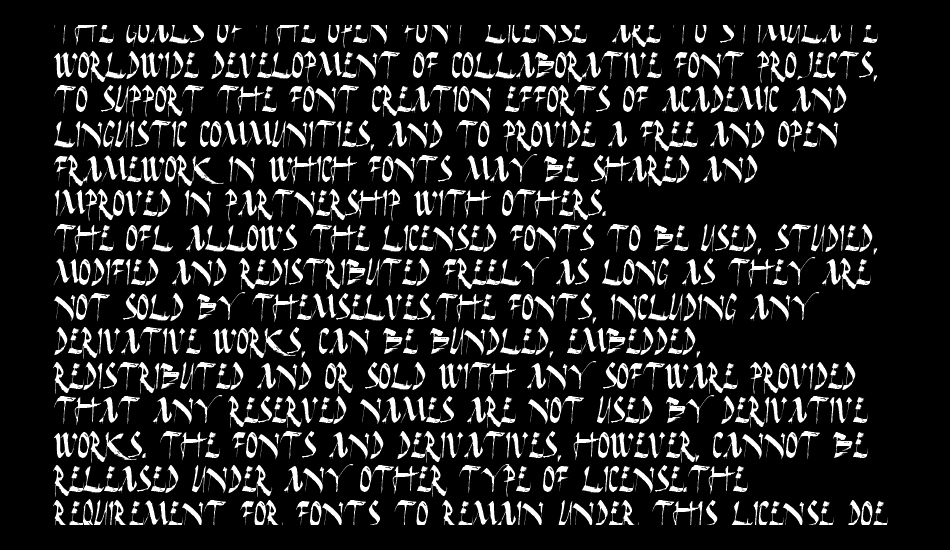 THE GOALS OF THE OPEN FONT LICENSE ARE TO STIMULATE
WORLDWIDE DEVELOPMENT OF COLLABORATIVE FONT PROJECTS,
TO SUPPORT THE FONT CREATION EFFORTS OF ACADEMIC AND
LINGUISTIC COMMUNITIES, AND TO PROVIDE A FREE AND OPEN
FRAMEWORK IN WHICH FONTS MAY BE SHARED AND
IMPROVED IN PARTNERSHIP WITH OTHERS.
THE OFL ALLOWS THE LICENSED FONTS TO BE USED, STUDIED,
MODIFIED AND REDISTRIBUTED FREELY AS LONG AS THEY ARE
NOT SOLD BY THEMSELVES.THE FONTS, INCLUDING ANY
DERIVATIVE WORKS, CAN BE BUNDLED, EMBEDDED,
REDISTRIBUTED AND OR SOLD WITH ANY SOFTWARE PROVIDED
THAT ANY RESERVED NAMES ARE NOT USED BY DERIVATIVE
WORKS. THE FONTS AND DERIVATIVES, HOWEVER, CANNOT BE
RELEASED UNDER ANY OTHER TYPE OF LICENSE.THE
REQUIREMENT FOR FONTS TO REMAIN UNDER THIS LICENSE DOE